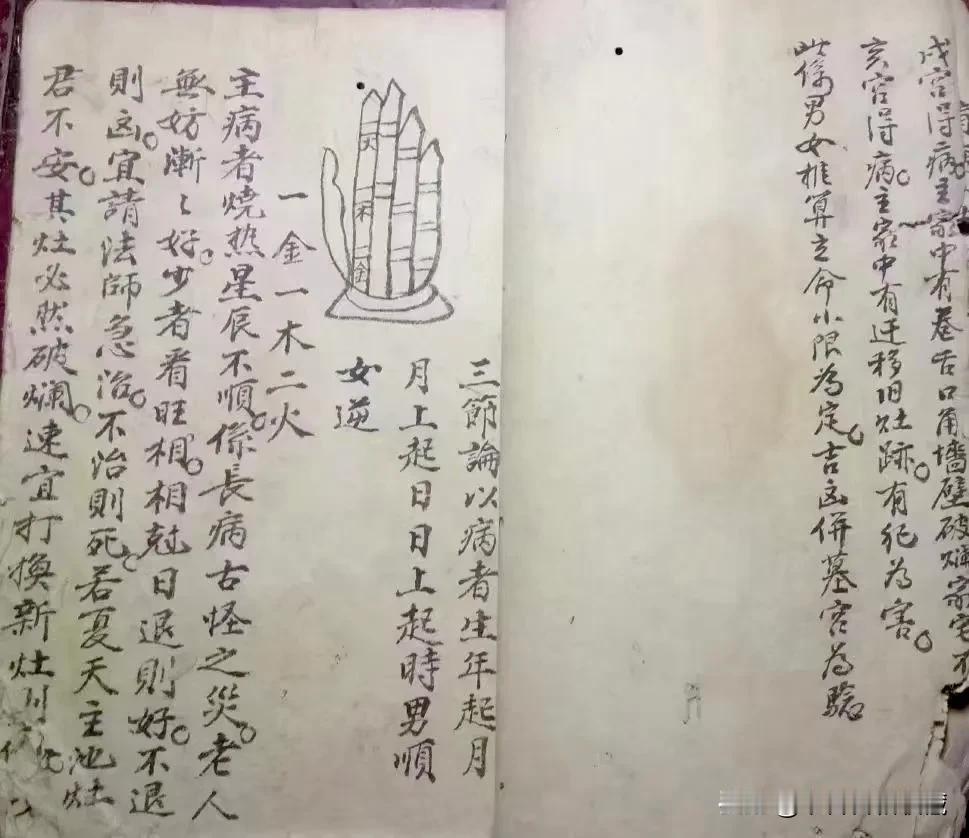 戌宮得病。主家中有卷舌口角墻壁破爛家宅不
亥宮得病。主家中有迁移旧灶跡。有犯為害。
此係男女推算立命小限為定。吉凶併墓宮為驗
三節論以病者生年起月
月上起日日上起時男順
女逆
火
木
金
一金一木二火
主病者燒热星辰不順。係長病古怪之災。老人
無妨漸〻好。少者看旺相。相尅日退則好。不退
則凶。宜請法師急治。不治則死。若夏天主池灶
君不安。其灶必然破爛。速宜打換新灶